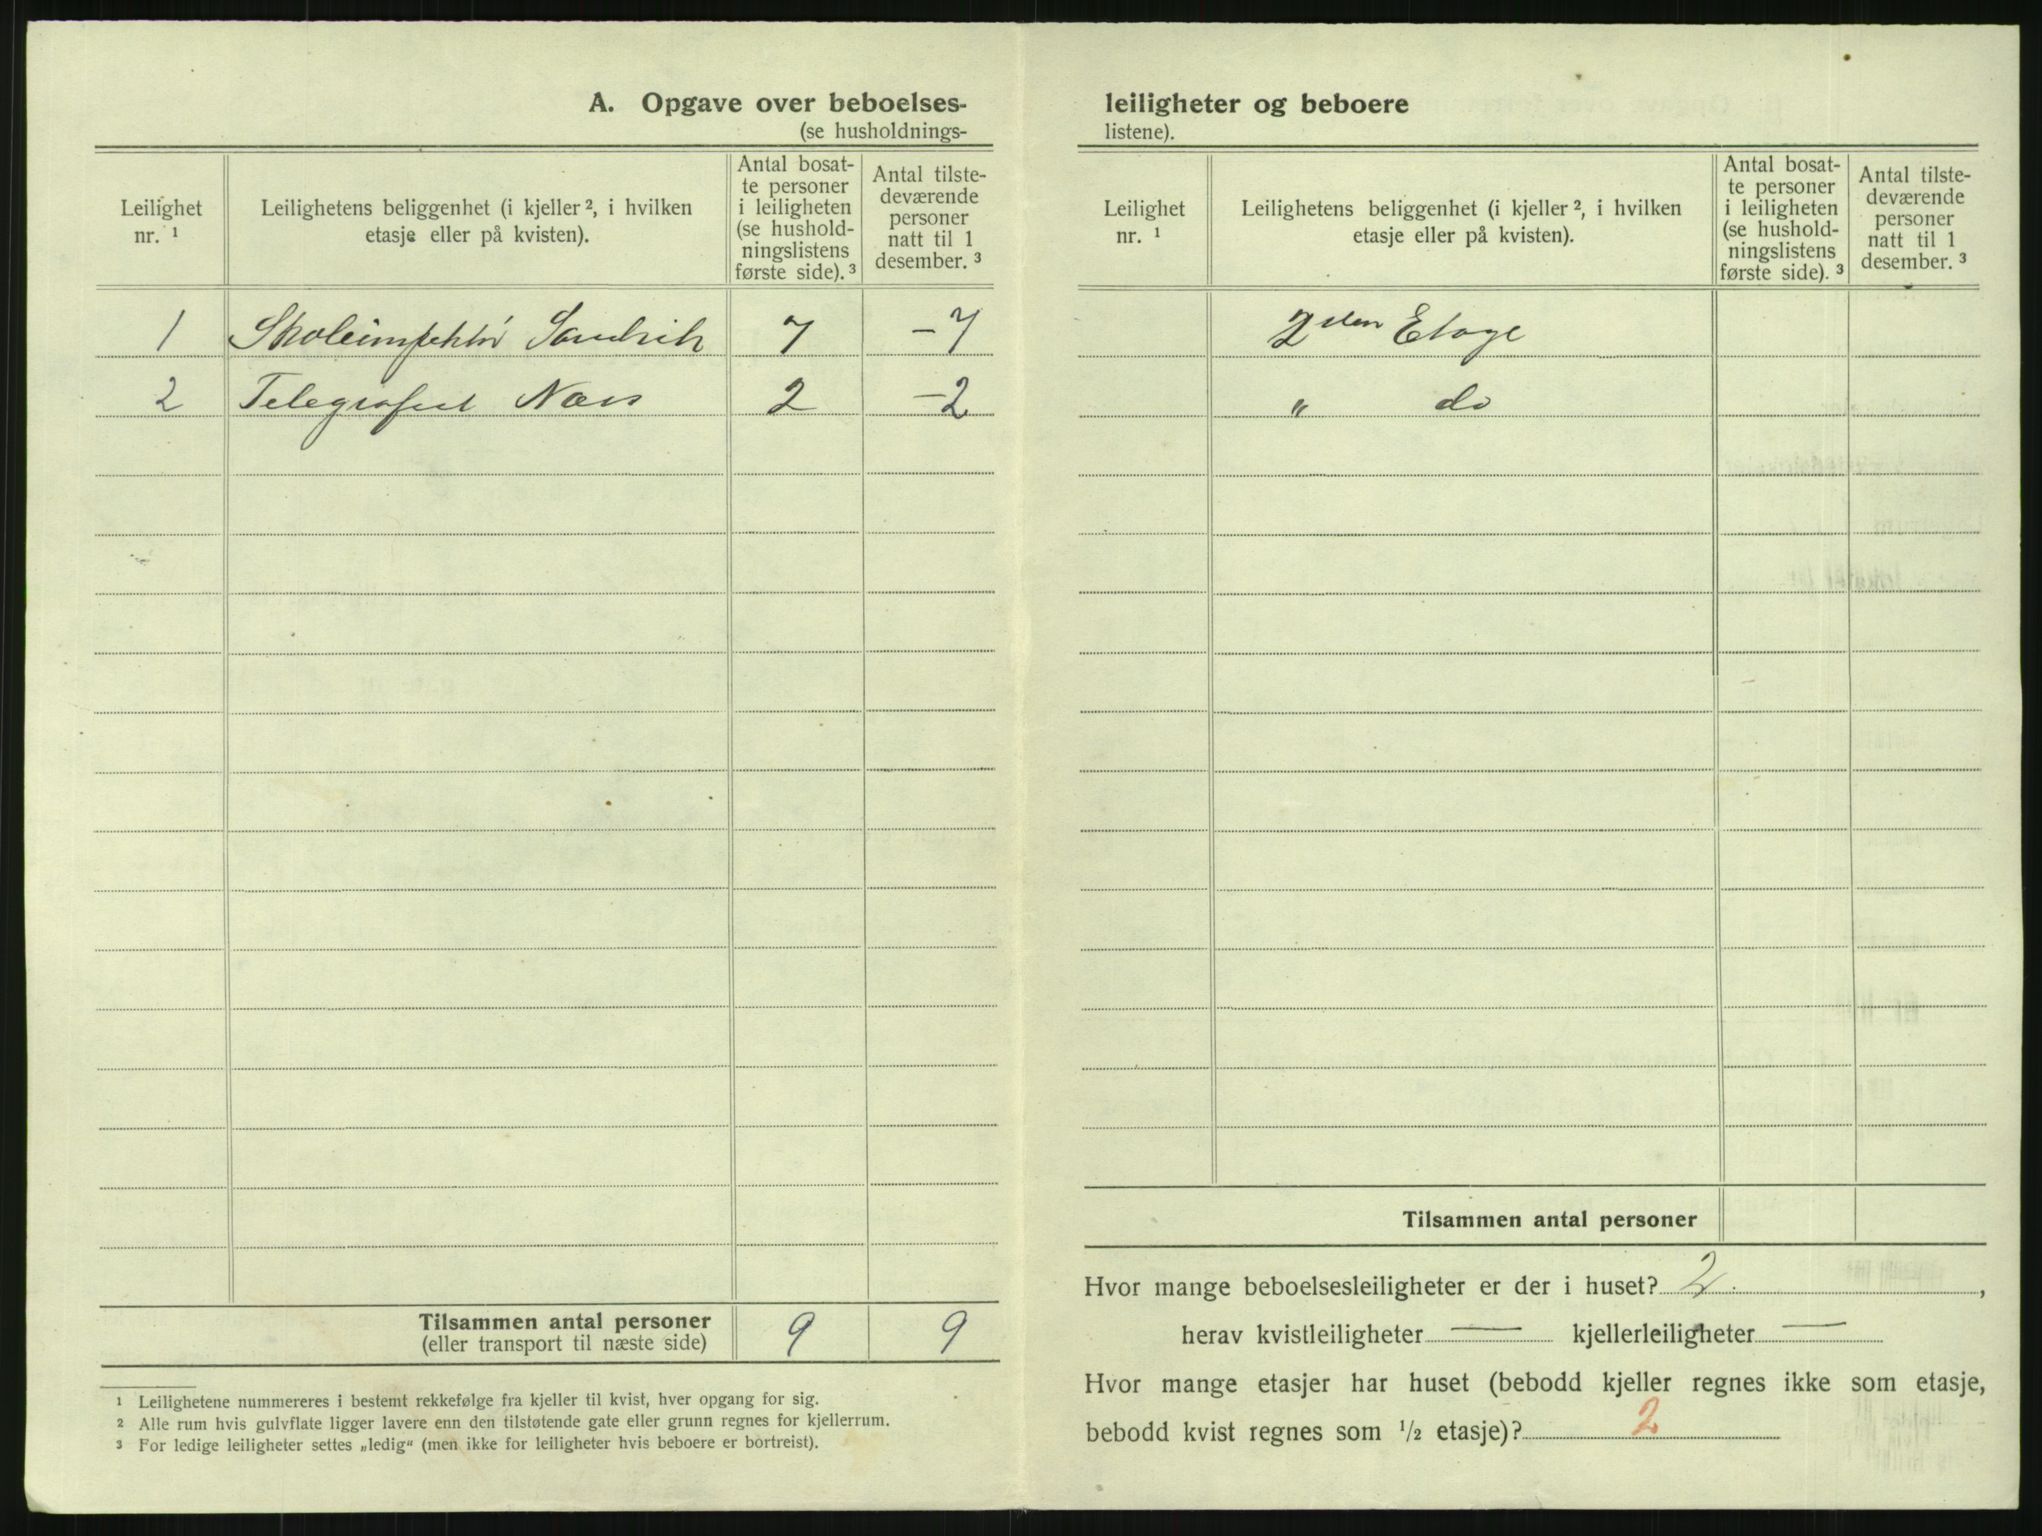 A. Opgave over beboelses-
(se husholdnings-
Leilighet nr. ¹
Leilighetens beliggenhet (i kjeller ², i hvilken etasje eller på kvisten).
Antal bosat-
te personer
i leiligheten
(se hushold-
ningslistens
første side). ³
Antal tilste-
deværende
personer
natt til 1
desember. ³
1 Skoleinspektör Sandvik 7 – 7
2 Telegrafist Næss 2 – 2
Tilsammen antal personer 9 9
(eller transport til næste side)
¹ Leilighetene nummereres i bestemt rekkefølge fra kjeller til kvist, hver opgang for sig.
² Alle rum hvis gulvflate ligger lavere enn den tilstøtende gate eller grunn regnes for kjellerrum.
³ For ledige leiligheter settes „ledig“ (men ikke for leiligheter hvis beboere er bortreist).
leiligheter og beboere
listene).
Leilighet nr. ¹
Leilighetens beliggenhet (i kjeller ², i hvilken etasje eller på kvisten).
Antal bosat-
te personer
i leiligheten
(se hushold-
ningslistens
første side). ³
Antal tilste-
deværende
personer
natt til 1
desember. ³
2den Etage
„ do
Tilsammen antal personer
Hvor mange beboelsesleiligheter er der i huset? 2 ,
herav kvistleiligheter — kjellerleiligheter —
Hvor mange etasjer har huset (bebodd kjeller regnes ikke som etasje,
bebodd kvist regnes som ½ etasje)? 2